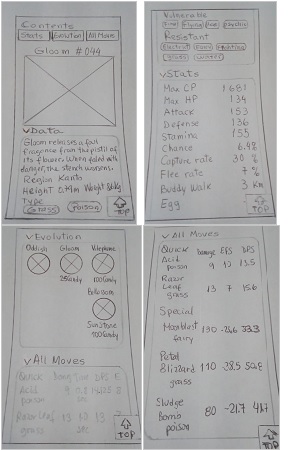 Contents
Stats Evolution All Moves
Gloom #044
vData
Gloom releases a foul
fragrance from the pistil of
its flower. When faced with
danger, the stench worsens.
Region Kanto
Height 0.79m Weight 8.6kg
Type
Grass Poison
TOP
Vulnerable
Fire Flying Ice Psychic
Resistant
Electric Fairy Fighting
Grass Water
vStats
Max CP 1681
Max HP 134
Attack 153
Defense 136
Stamina 155
Chance
Capture rate 30 %
Flee rate 7 %
Buddy Walk 3 km
Egg
TOP
vEvolution
Oddish Gloom Vileplume
25Candy 100Candy
Bellossom
Sun Stone
100Candy
vAll Moves
Quick
Acid
poison
Razor Leaf 13
grass
TOP
vAll Moves
Quick Damage EPS DPS
Acid
poison 9
Razor
Leaf 13 7 15.6
grass
Special
Moonblast 130
fairy
Petal
Blizzard 110
grass
Sludge
Bomb 80
poison
TOP